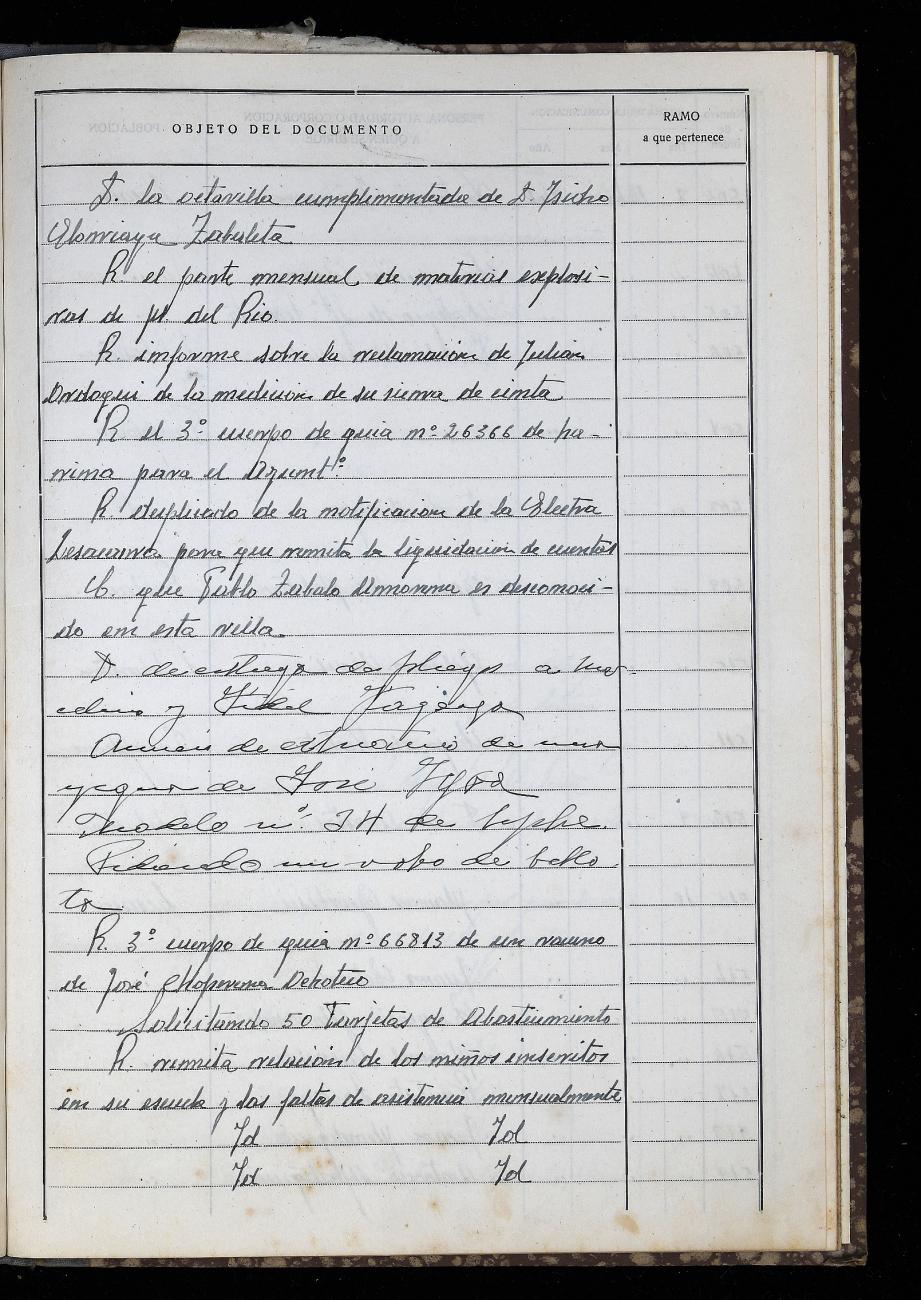 OBJETO DEL DOCUMENTO
RAMO
a que pertenece
D. la octavilla cumplimentada de D. Isidro
Zabaleta
R el parte mensual de materias explosi-
vas de pl del Rio.
R. informe sobre la reclamación de Julian
Ordoqui de la medicion de su sierra de cinta
R el 3º cuerpo de guia nº 26366 de ha-
rina para el Ayuntº.
R duplicado de la notificacion de la Electra
Lesacarra para que remita la liquidacion de cuentas
C. que Pablo Zabalo es desconoci-
do en esta villa.
D. de entrega de pliego a
y Fidel
de de una
yegua de José
Modelo nº. 24 de
Pidiendo un de bello
ta
R. 3º cuerpo de guia nº 66813 de un vacuno
de José
Solicitando 50 Tarjetas de Abastecimiento
R. remita relación de los niños inscritos
en su escuela y las faltas de asistencia mensualmente
Id Id
Id Id